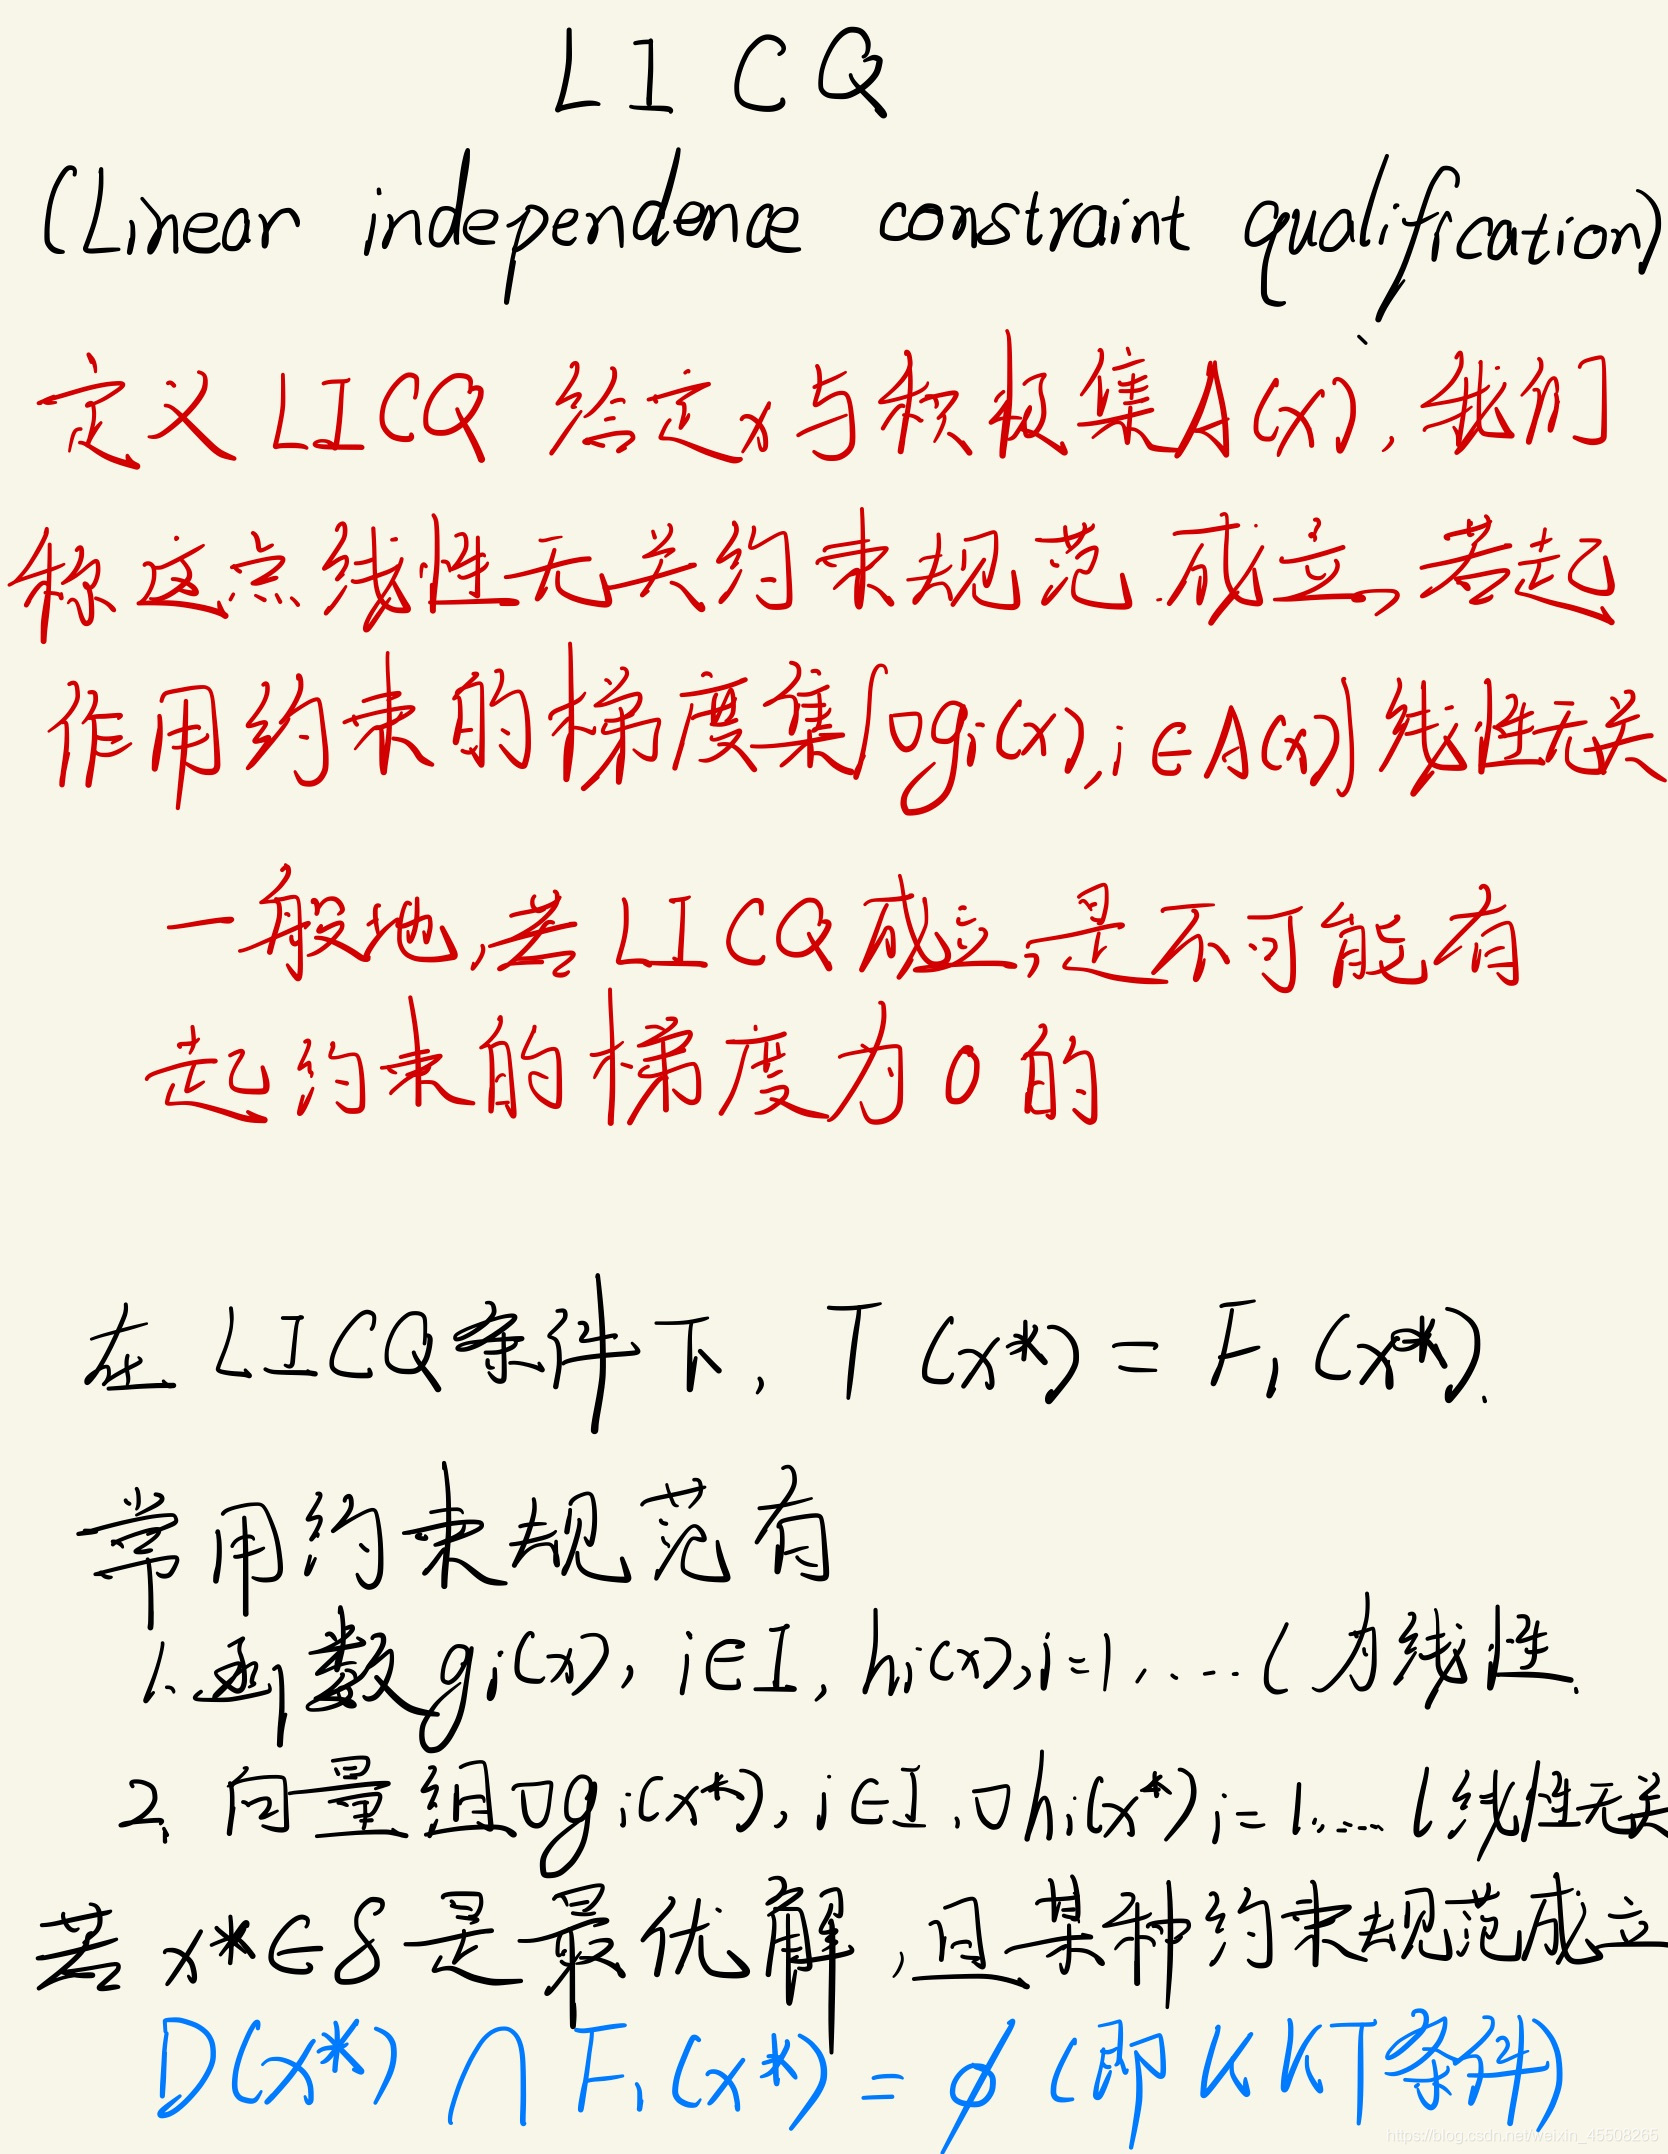 LICQ
(Linear independence constraint qualification)
定义 LICQ 给定x与积极集A(x),我们
称这点线性无关约束规范成立,若起
作用约束的梯度集{∇gi(x),i∈A(x)}线性无关
一般地,若LICQ成立,是不可能有
起约束的梯度为0的
在LICQ条件下,T(x*)=F1(x*).
常用约束规范有
1.函数gi(x),i∈I,hi(x),i=1,....l为线性.
2.向量组∇gi(x*),i∈I,∇hi(x*)i=1,....l线性无关
若x*∈S是最优解,且某种约束规范成立
D(x*)∩F1(x*)=ϕ(即KKT条件)
https://blog.csdn.net/weixin_45508265